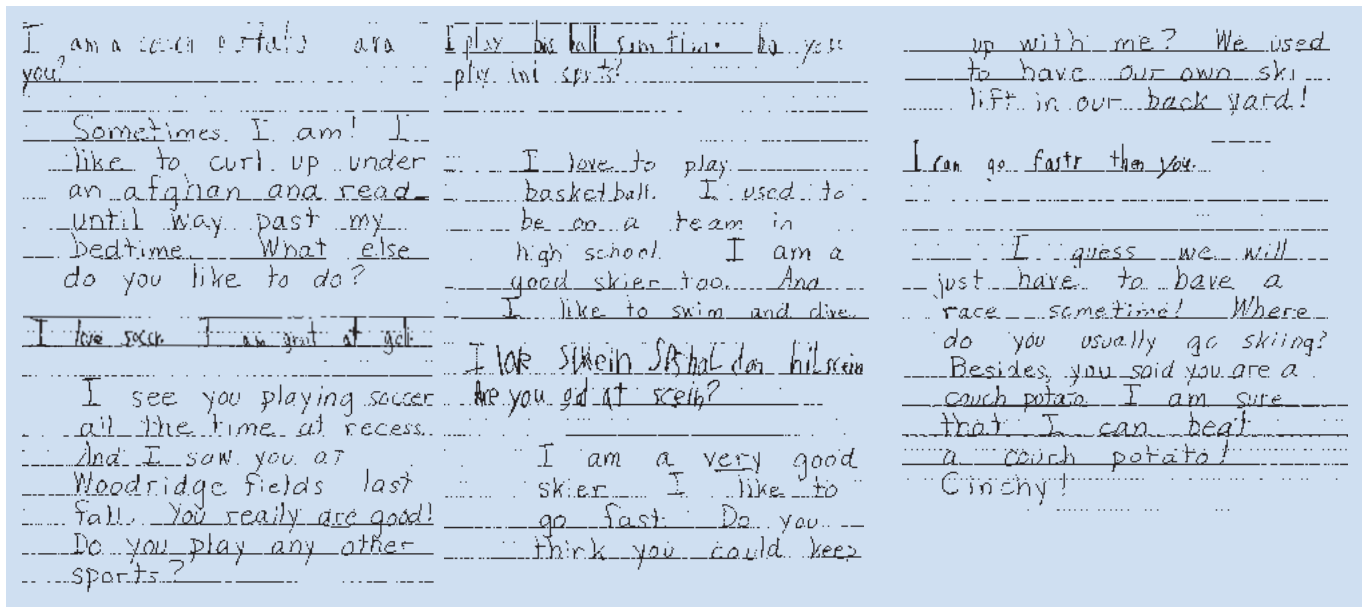 I am a couch potato ara
you?
Sometimes I am! I
like to curl up under
an afghan and read
until way past my
bedtime. What else
do you like to do?
I love soccr. I am grat at goli.
I see you playing soccer
all the time at recess.
And I saw you at
Woodridge fields last
fall. You really are good!
Do you play any other
sports?
I play bas ball sumtime. Do you
play ini sports?
I love to play
basketball. I used to
be on a team in
high school. I am a
good skier too. And
I like to swim and dive.
I love skiein
Are you gd at scein?
I am a very good
skier I like to
go fast. Do you
think you could keep
up with me? We used
to have our own ski
lift in our back yard!
I can go fastr then you.
I guess we will
just have to have a
race sometime! Where
do you usually go skiing?
Besides, you said you are a
couch potato I am sure
that I can beat
a couch potato!
Cinchy!